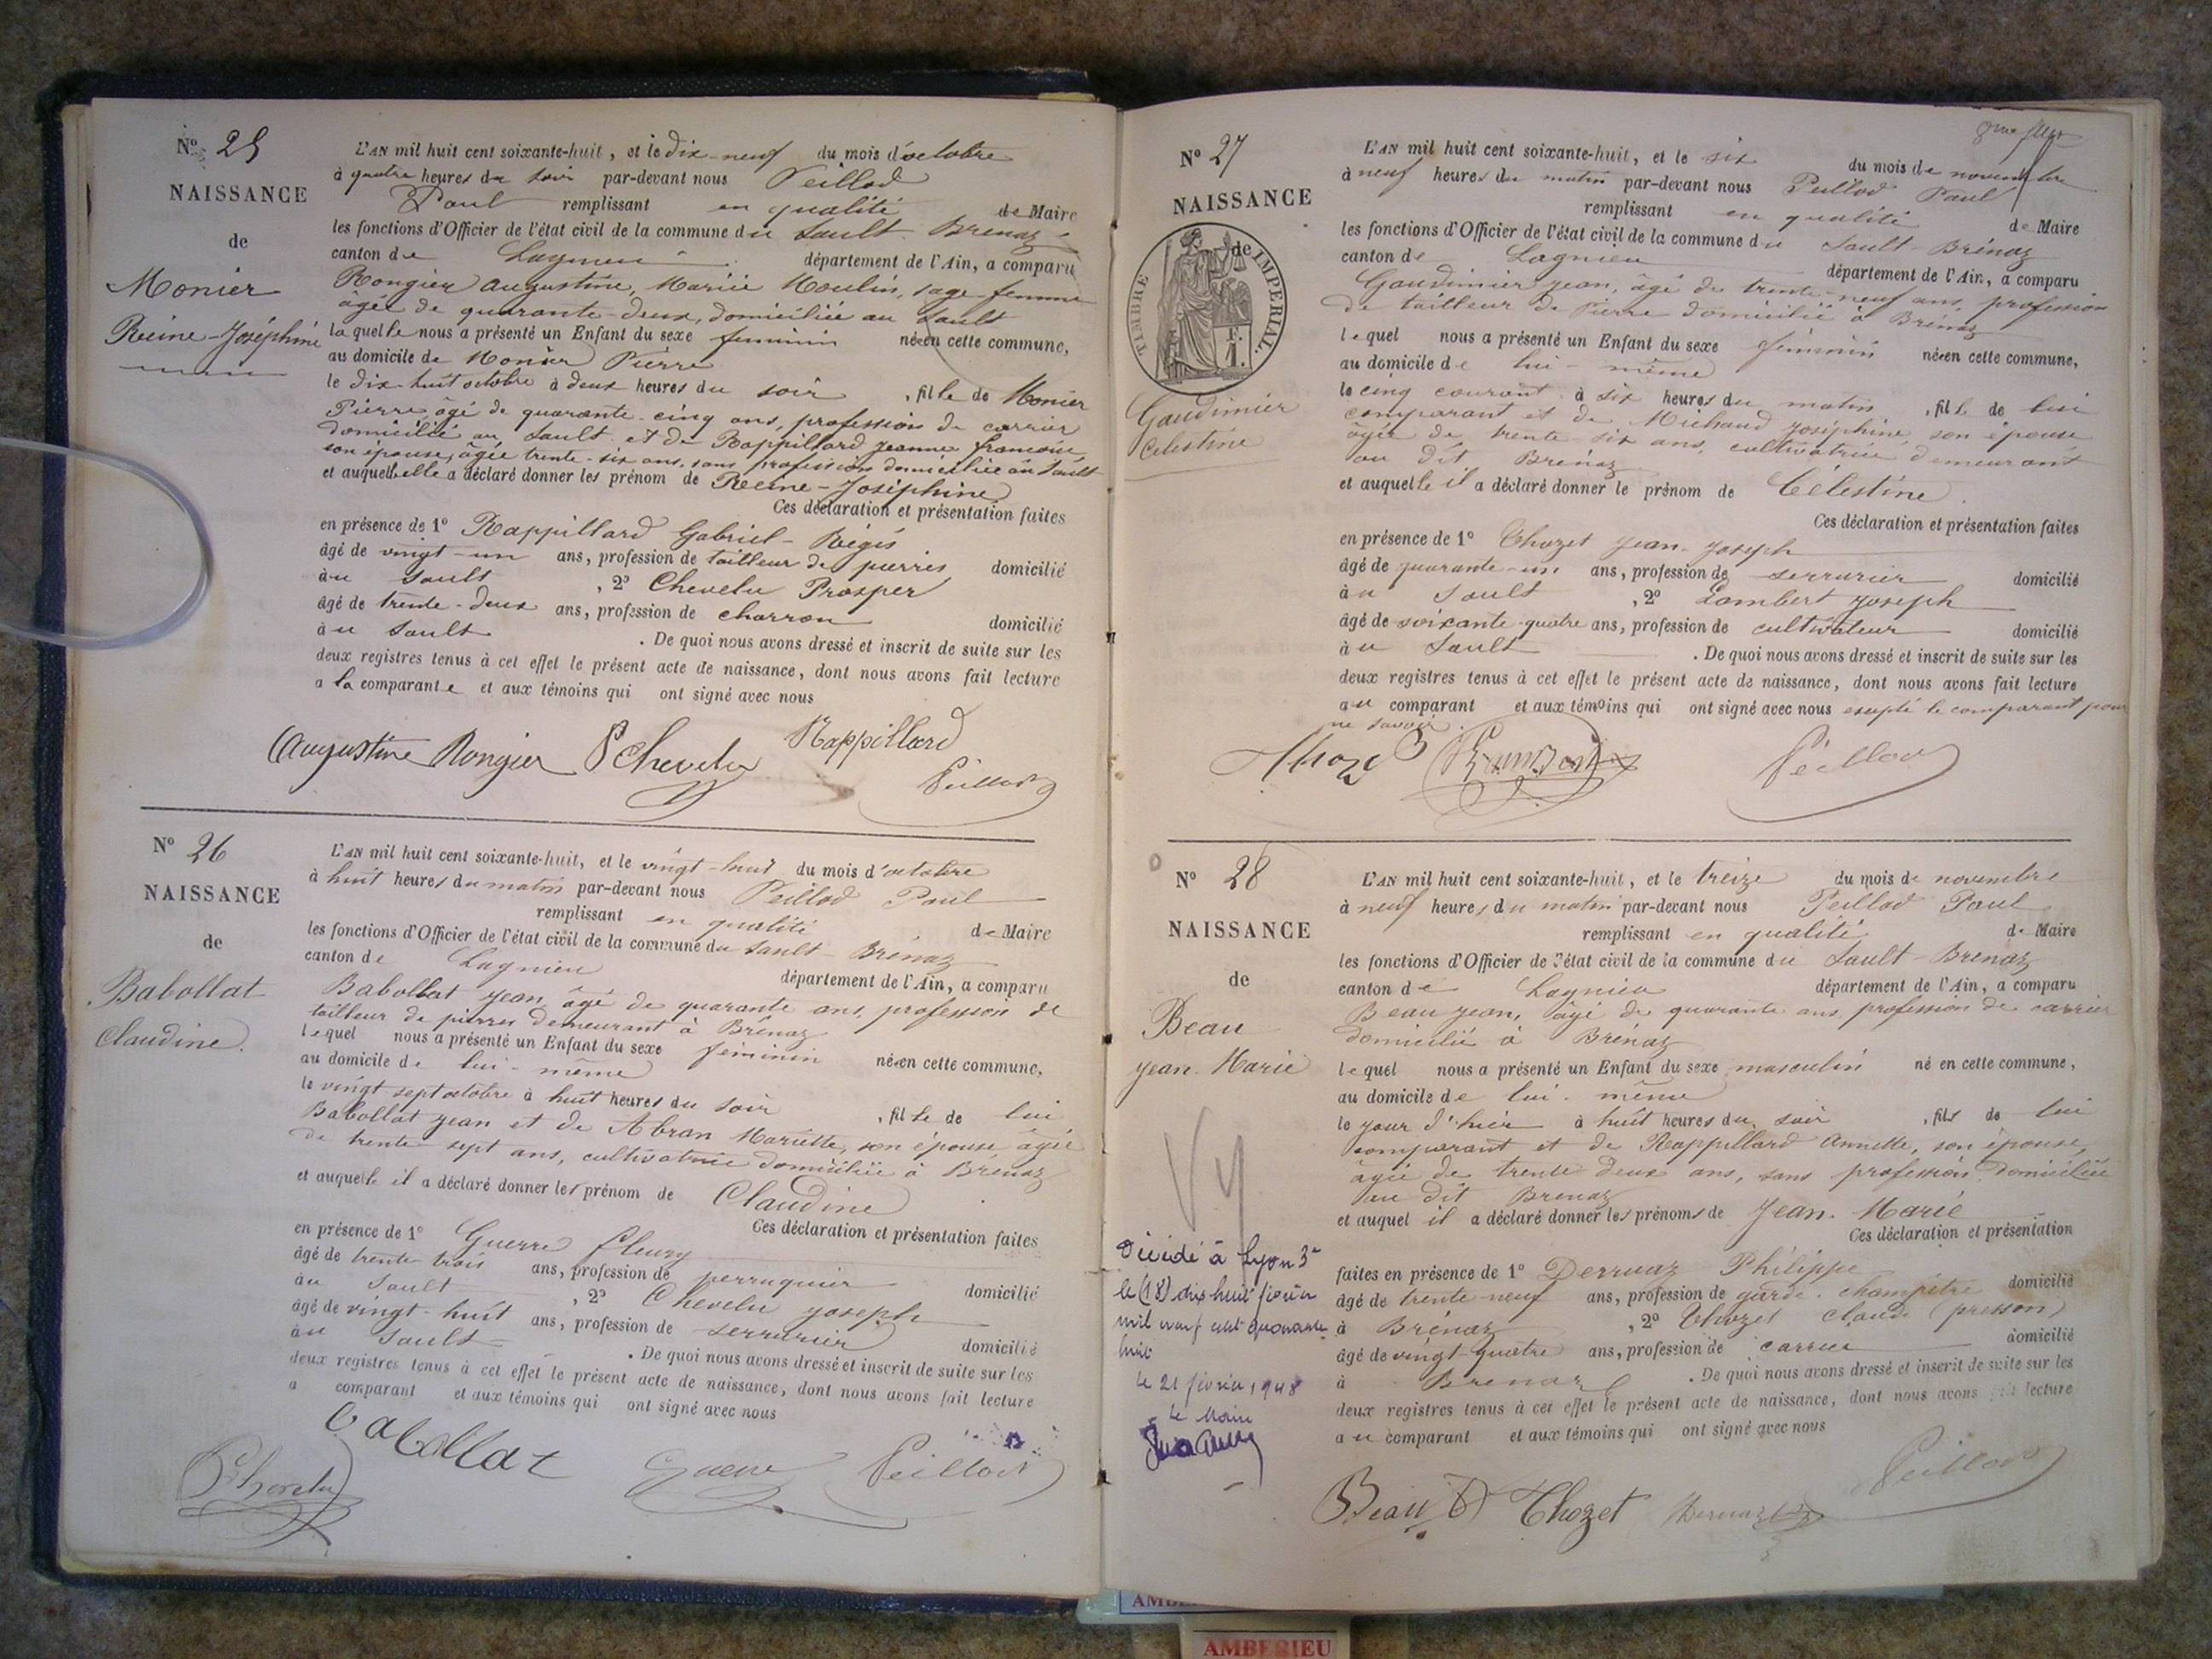 Nº 25
NAISSANCE
de
Monier
Reine-Joséphine
L'AN mil huit cent soixante-huit, et le dix-neuf du mois d'octobre
à quatre heures du soir par-devant nous Peillod
Paul remplissant en qualité de Maire
les fonctions d'Officier de l'état civil de la commune du Sault-Brénaz
canton de Lagnieu département de l'Ain, a comparu
Rongier Augustine, Mariée Moulin, sage-femme
âgée de quarante-deux, domiciliée au Sault
laquelle nous a présenté un Enfant du sexe féminin née en cette commune,
au domicile de Monier Pierre
le dix-huit octobre à deux heures du soir, fille de Monier
Pierre, âgé de quarante-cinq ans, profession de carrier
domicilié au Sault et de Rappillard Jeanne françoise,
son épouse, âgée trente-six ans, sans profession domiciliée au Sault
et auquelle elle a déclaré donner les prénom de Reine-Joséphine
Ces déclaration et présentation faites
en présence de 1º Rappillard Gabriel-Régis
âgé de vingt-un ans, profession de tailleur de pierres domicilié
à au Sault, 2º Chevelu Prosper
âgé de trente-deux ans, profession de charron domicilié
à au Sault. De quoi nous avons dressé et inscrit de suite sur les
deux registres tenus à cet effet le présent acte de naissance, dont nous avons fait lecture
a la comparante et aux témoins qui ont signé avec nous
Augustine Rongier P Chevelu Rappillard
Peillod
Nº 26
NAISSANCE
de
Babollat
Claudine.
L'AN mil huit cent soixante-huit, et le vingt-huit du mois d'octobre
à huit heures du matin par-devant nous Peillod Paul
remplissant en qualité de Maire
les fonctions d'Officier de l'état civil de la commune du Sault-Brénaz
canton de Lagnieu département de l'Ain, a comparu
Babollat Jean, âgé de quarante ans, profession de
tailleur de pierres demeurant à Brénaz
lequel nous a présenté un Enfant du sexe féminin née en cette commune,
au domicile de lui-même
le vingt sept octobre à huit heures du soir, fille de lui
Babollat Jean et de Abran Mariette, son épouse âgée
de trente-sept ans, cultivatrice domiciliée à Brénaz
et auquelle il a déclaré donner les prénom de Claudine
Ces déclaration et présentation faites
en présence de 1º Guerre fleury
âgé de trente trois ans, profession de perruquier domicilié
à au Sault, 2º Chevelu Joseph
âgé de vingt-huit ans, profession de serrurier domicilié
à au Sault. De quoi nous avons dressé et inscrit de suite sur les
deux registres tenus à cet effet le présent acte de naissance, dont nous avons fait lecture
a comparant et aux témoins qui ont signé avec nous
Babollat
Chevelu Guerre Peillod
Nº 27
NAISSANCE
de
TIMBRE IMPERIAL.
F.
1.
Gaudimier
Célestine
L'AN mil huit cent soixante-huit, et le six du mois de novembre
à neuf heures du matin par-devant nous Peillod Paul
remplissant en qualité de Maire
les fonctions d'Officier de l'état civil de la commune du Sault-Brénaz
canton de Lagnieu département de l'Ain, a comparu
Gaudimier Jean, âgé de trente-neuf ans, profession
de tailleur de Pierre domicilié à Brénaz
lequel nous a présenté un Enfant du sexe féminin née en cette commune,
au domicile de lui-même
le cinq courant à six heures du matin, fille de lui
comparant et de Michaud Joséphine, son épouse
âgée de trente-six ans, cultivatrice demeurant
au dit Brénaz
et auquelle il a déclaré donner le prénom de Célestine.
Ces déclaration et présentation faites
en présence de 1º Thozet Jean-Joseph
âgé de quarante-un ans, profession de serrurier domicilié
à au Sault, 2º Lombert Joseph
âgé de soixante-quatre ans, profession de cultivateur domicilié
à au Sault. De quoi nous avons dressé et inscrit de suite sur les
deux registres tenus à cet effet le présent acte de naissance, dont nous avons fait lecture
au comparant et aux témoins qui ont signé avec nous excepté le comparant pour
ne savoir.
Thozet Peillod
Nº 28
NAISSANCE
de
Beau
Jean-Marie
L'AN mil huit cent soixante-huit, et le treize du mois de novembre
à neuf heures du matin par-devant nous Peillod Paul
remplissant en qualité de Maire
les fonctions d'Officier de l'état civil de la commune du Sault-Brénaz
canton de Lagnieu département de l'Ain, a comparu
Beau Jean, âgé de quarante ans profession de carrier
domicilié à Brénaz
lequel nous a présenté un Enfant du sexe masculin né en cette commune,
au domicile de lui-même
le jour d'hier à huit heures du soir, fils de lui
comparant et de Rappillard Annette, son épouse,
âgée de trente deux ans, sans profession domiciliée
au dit Brénaz
et auquel il a déclaré donner les prénoms de Jean-Marie
Ces déclaration et présentation
faites en présence de 1º Derruaz Philippe
âgé de trente-neuf ans, profession de garde-champêtre domicilié
à Brénaz, 2º Thozet Claude (presson)
âgé de vingt-quatre ans, profession de carrier domicilié
à Brenaz. De quoi nous avons dressé et inscrit de suite sur les
deux registres tenus à cet effet le présent acte de naissance, dont nous avons fait lecture
au comparant et aux témoins qui ont signé avec nous
Décédé à Lyon 3e
le (18) dix huit février
mil neuf cent quarante
huit
le 21 février 1948
le Maire
Beau Thozet Derruaz Peillod
AMBERIEU